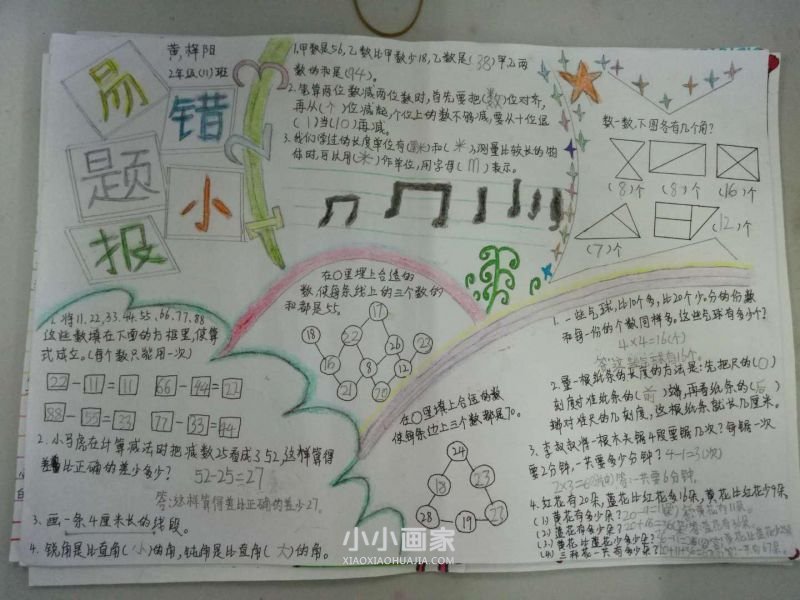 黄梓阳
2年级(11)班
易
错
题
小
报
3
2
1
1.甲数是56,乙数比甲数少18,乙数是(38)甲乙两
数的和是(94)。
2.笔算两位数减两位数时,首先要把(数)位对齐,
再从(个)位减起,个位上的数不够减,要从十位退
(1)当(10)再减。
3.我们学过的长度单位有(厘米)和(米),测量比较长的物
体时,可以用(米)作单位,用字母(m)表示。
数一数,下图各有几个角?
(8)个
(8)个
(16)个
(7)个
(12)个
在○里填上合适的
数,使每条线上的三个数的
和都是55。
17
18
26
16
22
8
12
22
21
20
在○里填上合适的数
使每条边上三个数都是70。
24
18
23
28
19
23
1.将11、22、33、44、55、66、77、88
这些数填在下面的方框里,使算
式成立。(每个数只能用一次)
22-11=11 66-44=22
88-55=33 77-33=44
2.小马虎在计算减法时把减数25看成了52,这样算得
差比正确的差少多少?
52-25=27
答:这样算得差比正确的差少27。
3.画一条4厘米长的线段。
4.锐角是比直角(小)的角,钝角是比直角(大)的角。
1.一些气球,比10个多,比20个少。分的份数
和每一份的个数同样多。这些气球有多少个?
4×4=16(个)
答:这些气球有16个。
2.量一根纸条的长度的方法是:先把尺的(0)
刻度对准纸条的(前)端,再看纸条的(后)
端对准尺的几刻度,这根纸条就长几厘米。
3.李叔叔将一根木头锯4段要锯几次?每锯一次
要2分钟,一共要多少分钟?4-1=3(次)
2×3=6(分)答:一共要6分钟。
4.红花有20朵,蓝花比红花多16朵,黄花比红花少9朵。
(1)黄花有多少朵?
(2)蓝花有多少朵?
(3)黄花比蓝花少多少朵?
(4)三种花一共有多少朵?
小小画家
XIAOXIAOHUAJIA.COM